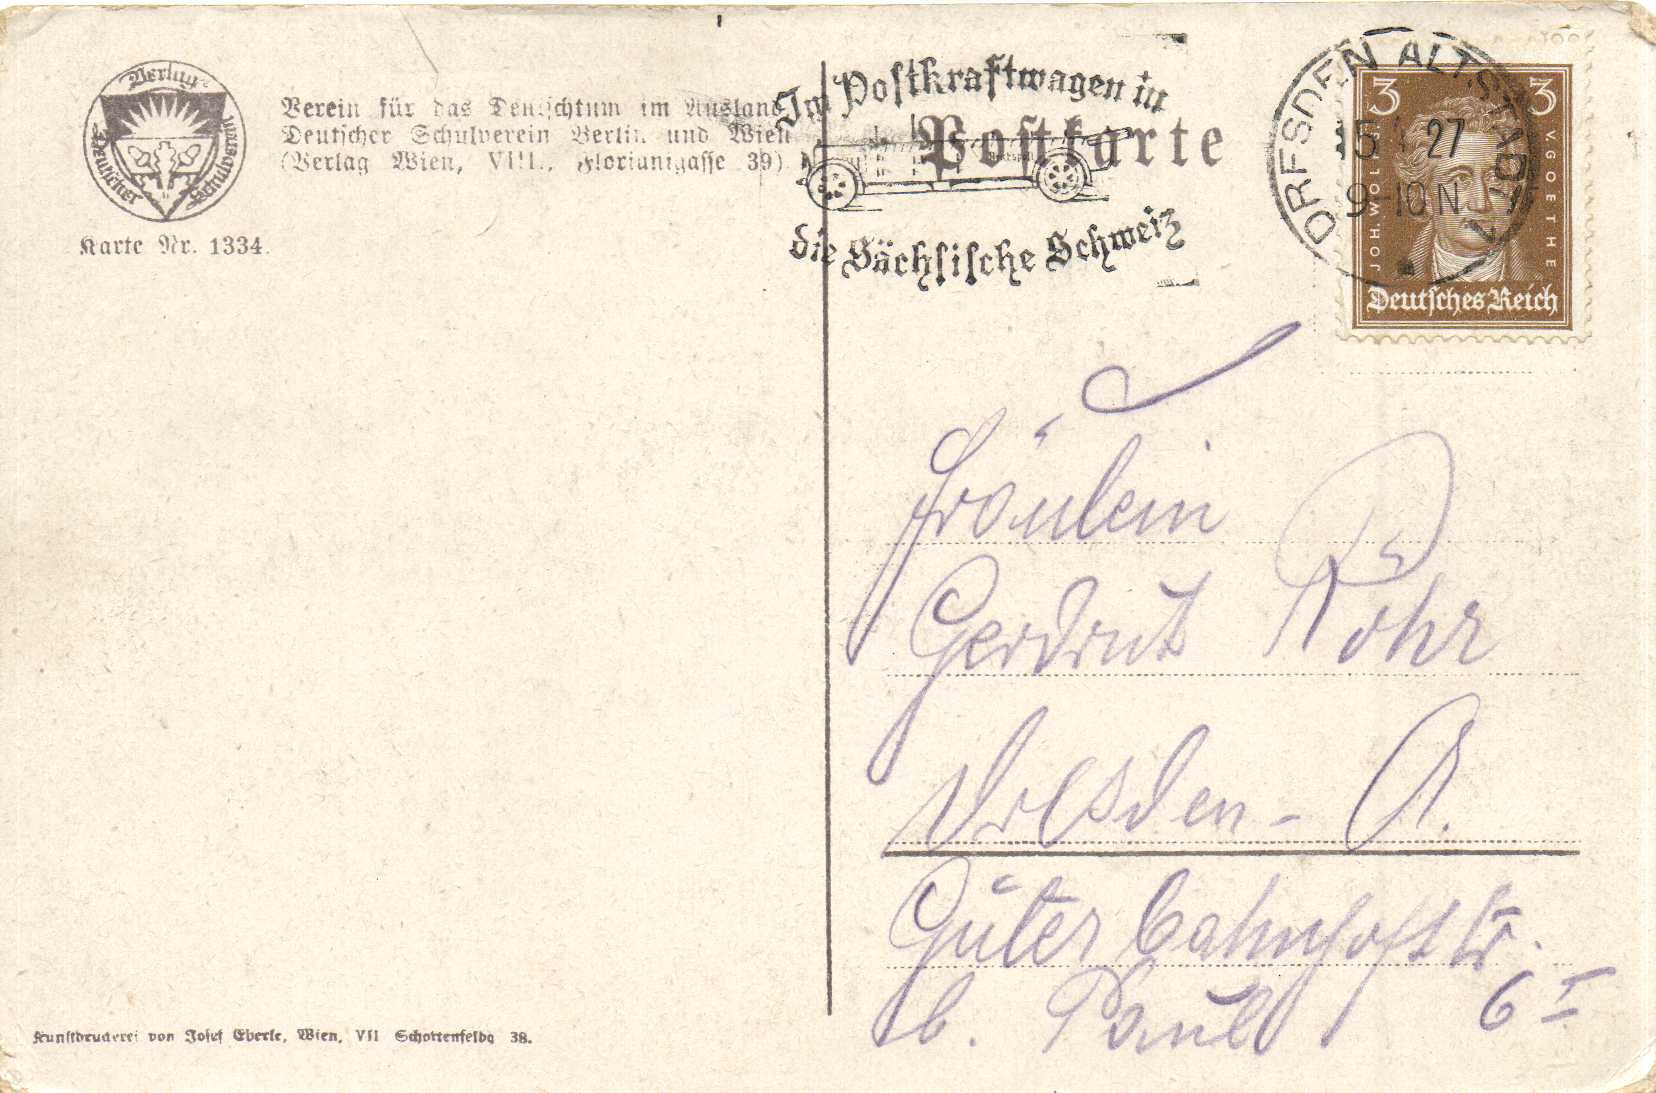 Verlag
Deutscher Schulverein
Karte Nr. 1334.
Verein für das Deutschtum im Ausland
Deutscher Schulverein Berlin und Wien
(Verlag Wien, VIII., Florianigasse 39).
Im Postkraftwagen in
die Sächsische Schweiz
Postkarte
DRESDEN ALTSTADT
5 27
9-10 N
1
3 3
JOH. WOLFG. V. GOETHE
Deutsches Reich
Fräulein
Gerdrut Röhr
Dresden - A.
Güterbahnhofstr.
6 I
b. Paul
Kunstdruckerei von Josef Eberle, Wien, VII Schottenfeldg 38.